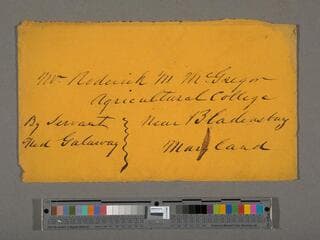 Mr Roderick M McGregor
Agricultural College
By Servant
Ned Galaway
Near Bladensburg
Maryland